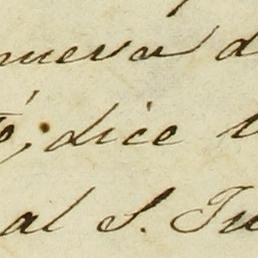 nueva d
dice
al S. Ju